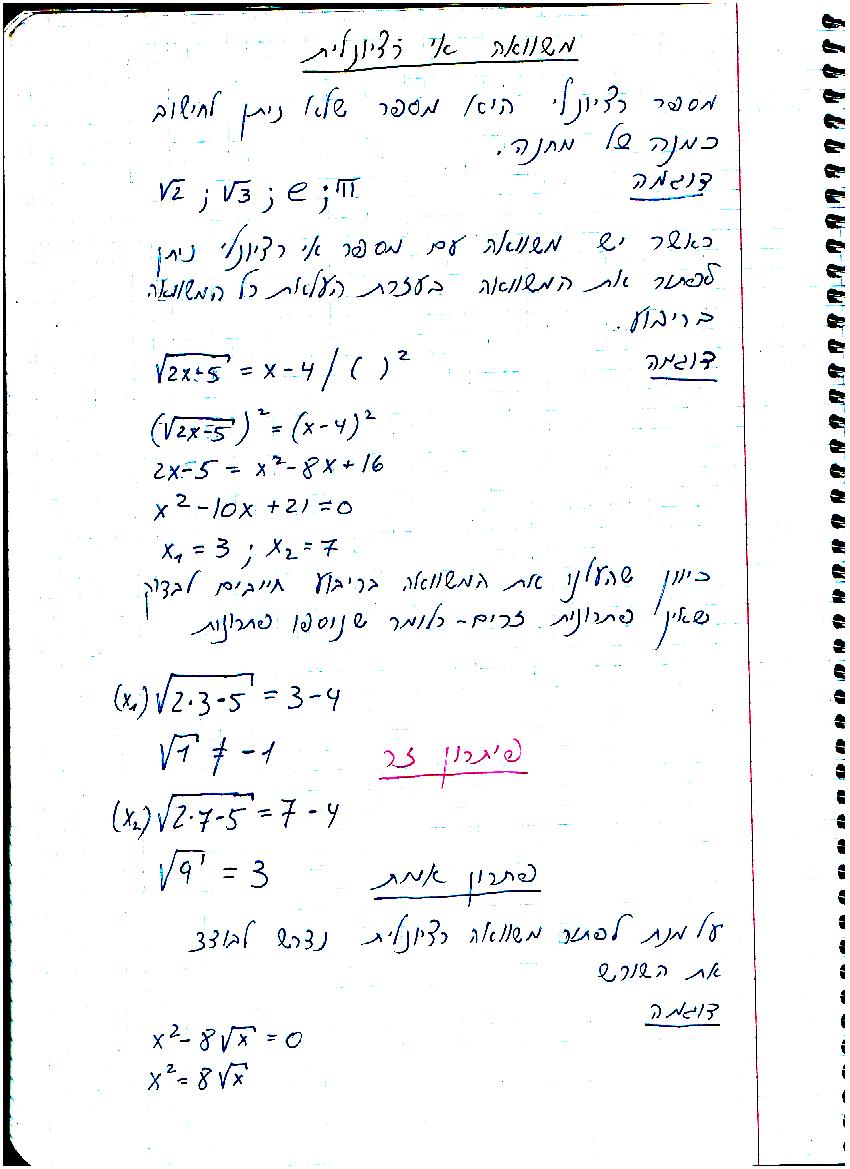 משוואה אי רציונלית
מספר רציונלי היא מספר שלא ניתן לחישוב
כמנה של מתנה.
דוגמה
√2 ; √3 ; e ; π
כאשר יש משוואה עם מספר אי רציונלי ניתן
לפתור את המשוואה בעזרת העלאת כל המשוואה
בריבוע.
דוגמה
√(2x-5) = x-4 / ( )²
(√(2x-5))² = (x-4)²
2x-5 = x²-8x+16
x²-10x+21=0
x₁=3 ; x₂=7
כיוון שהעלנו את המשוואה בריבוע חייבים לבדוק
שאין פתרונית זרים - כלומר שנוספו פתרונות
(x₁) √(2·3-5) = 3-4
√1 ≠ -1 פיתרון זר
(x₂) √(2·7-5) = 7-4
√9 = 3 פתרון אמת
על מנת לפתור משוואה רציונלית נדרש לבודד
את השורש
דוגמה
x²-8√x = 0
x²=8√x